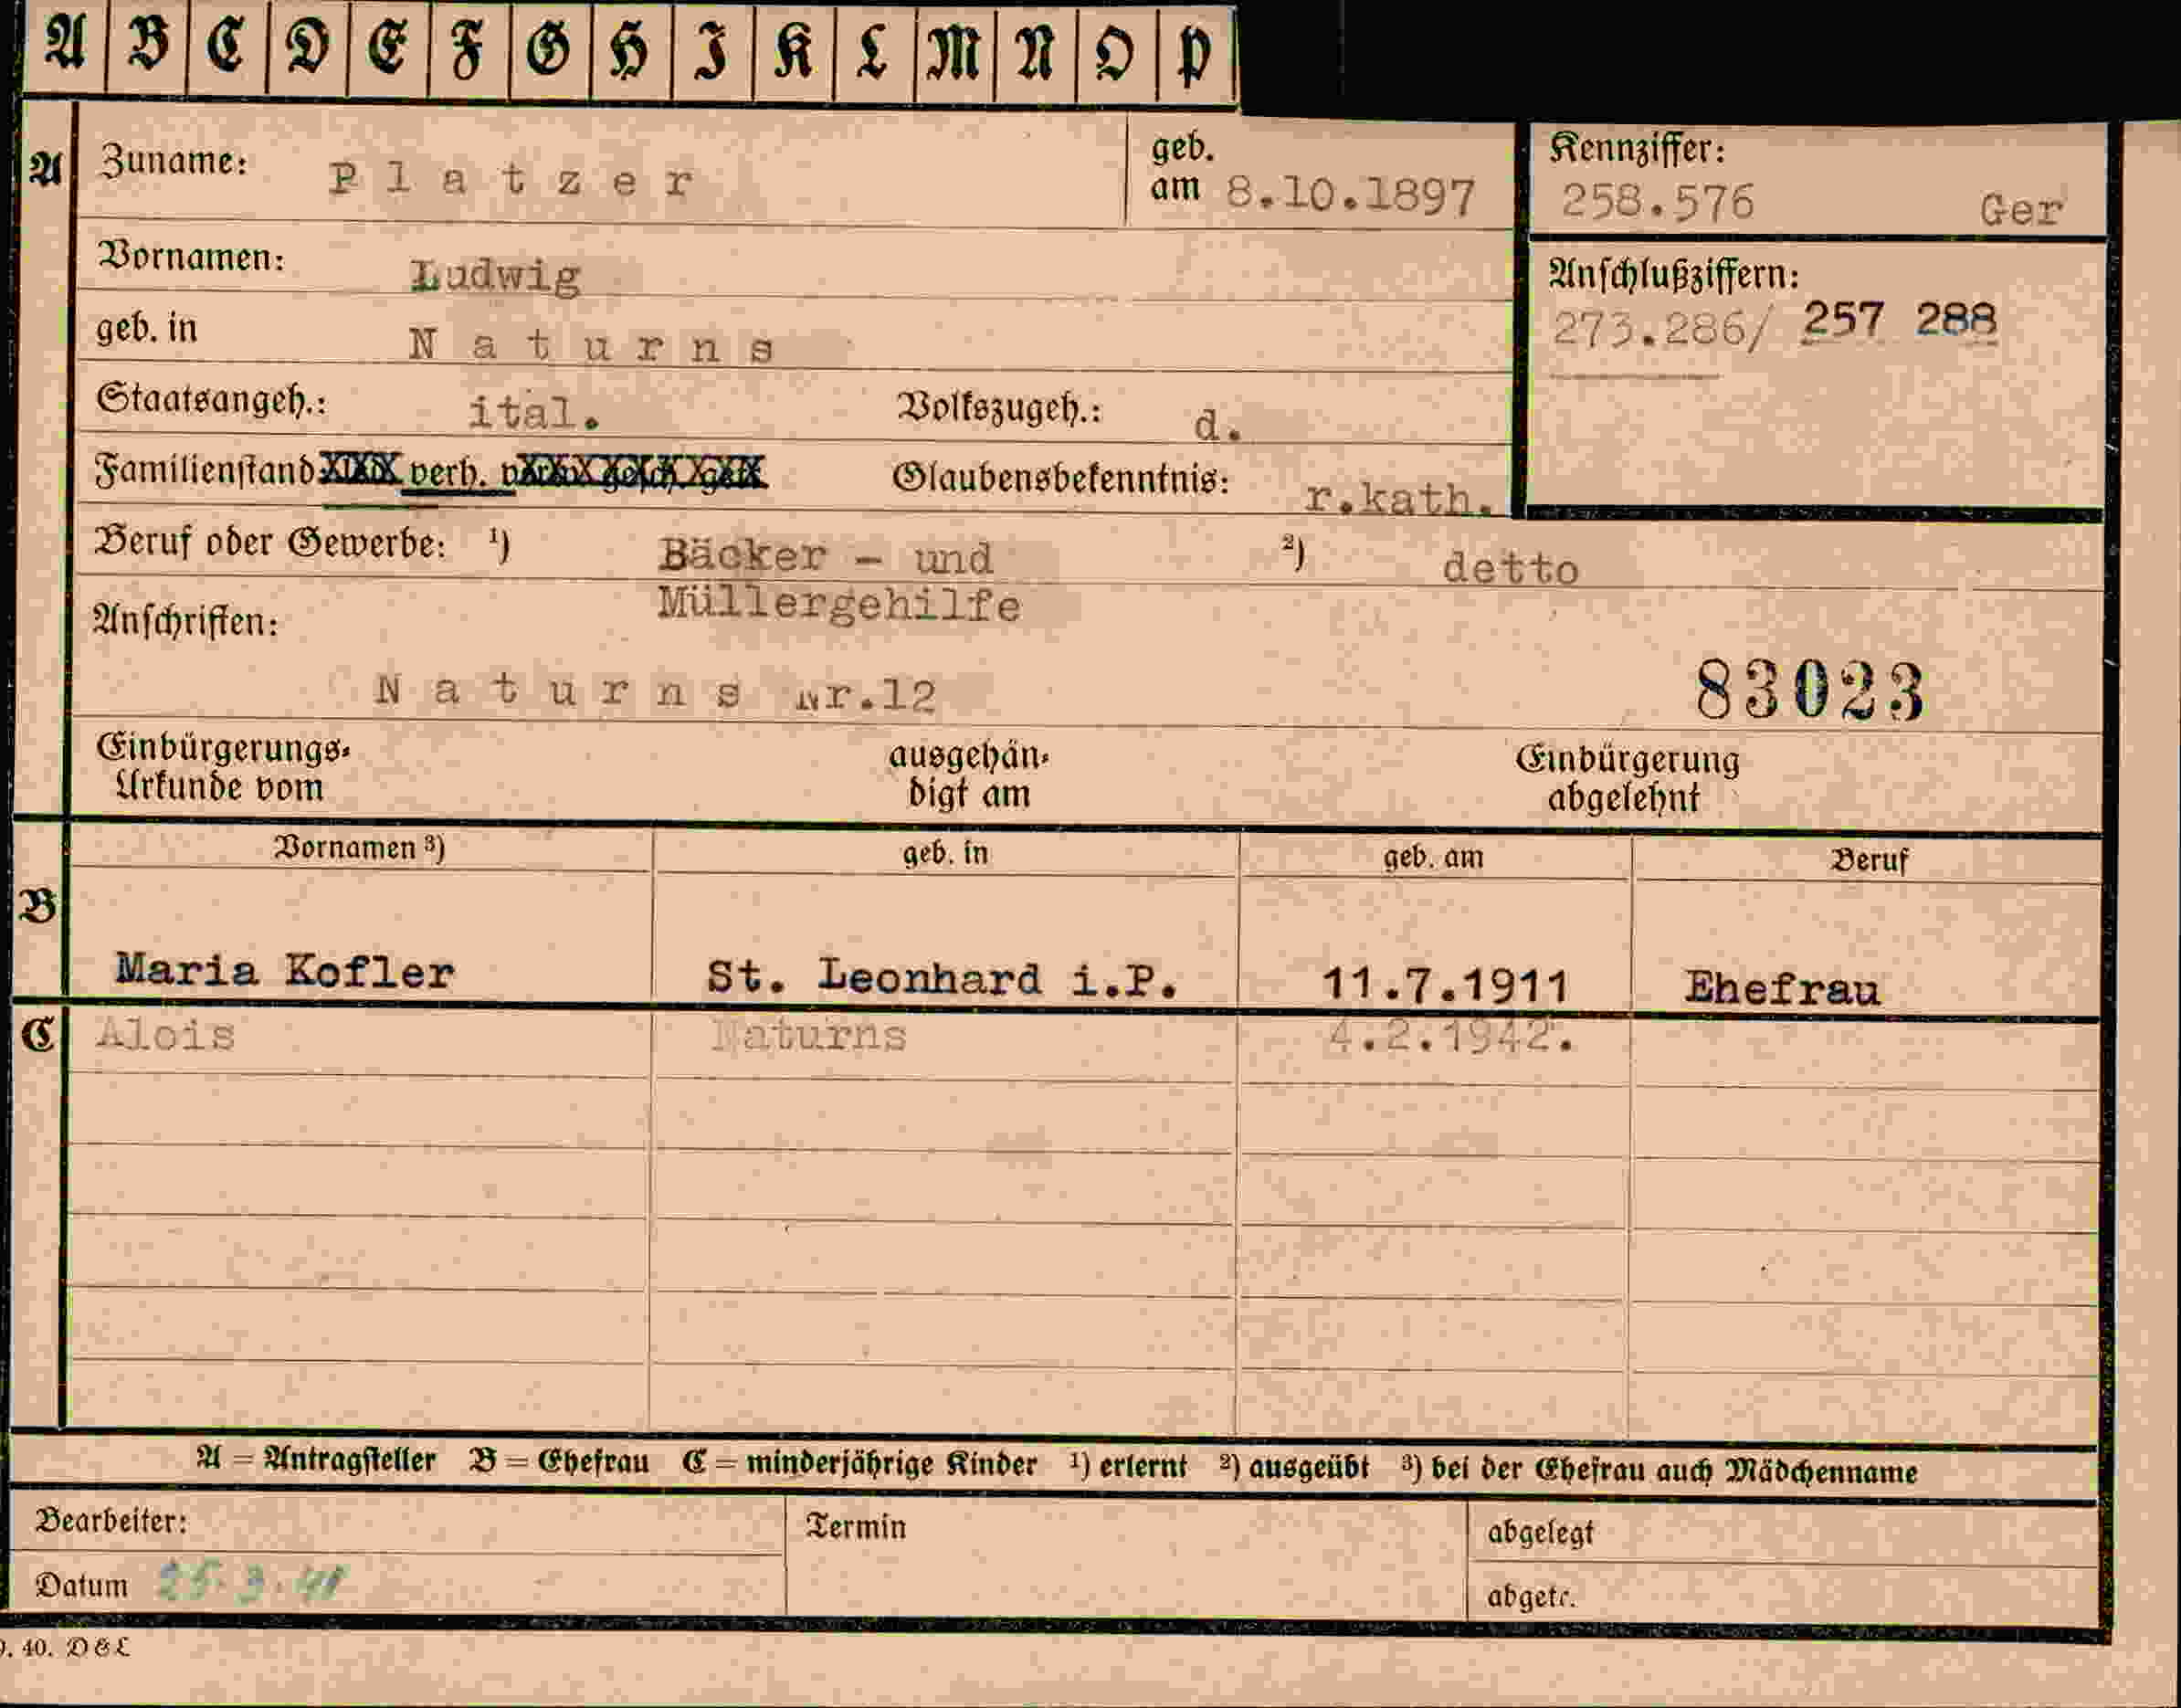 A B C D E F G H I K L M N O P
A
Zuname: Platzer
geb.
am 8.10.1897
Kennziffer:
258.576 Ger
Vornamen: Ludwig
Anschlußziffern:
273.286/ 257 288
geb. in Naturns
Staatsangeh.: ital. Volkszugeh.: d.
Familienstand verh. Glaubensbekenntnis: r.kath.
Beruf oder Gewerbe: ¹) Bäcker - und ²) detto
Müllergehilfe
Anschriften:
Naturns Nr.12
83023
Einbürgerungs-
Urkunde vom
ausgehän-
digt am
Einbürgerung
abgelehnt
Vornamen ³) geb. in geb. am Beruf
B
Maria Kofler St. Leonhard i.P. 11.7.1911 Ehefrau
C Alois Naturns 4.2.1942.
A = Antragsteller B = Ehefrau C = minderjährige Kinder ¹) erlernt ²) ausgeübt ³) bei der Ehefrau auch Mädchenname
Bearbeiter: Termin abgelegt
Datum 25.3.41 abgetr.
40. D & L